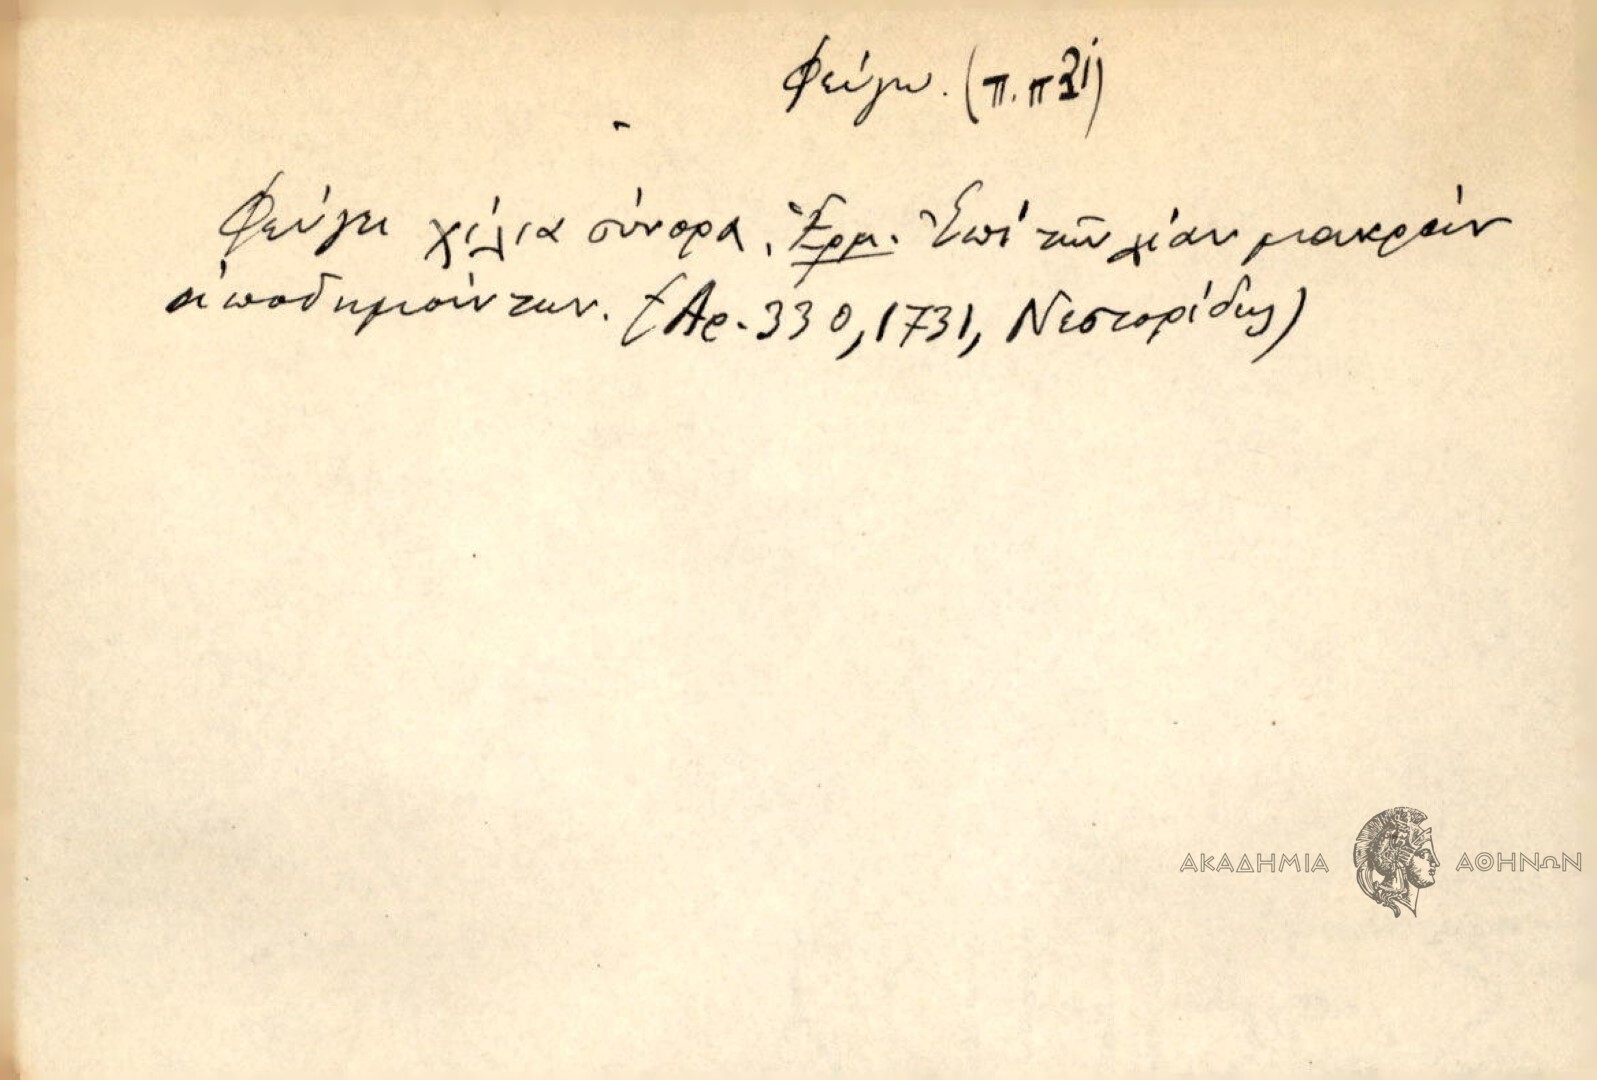 Φεύγω. (π.π 31)
Φεύγει χίλια σύνορα. Ἑρμ. Ἐπί τῶν λίαν μακράν
ἀποδημούντων. (Αρ. 330, 1731, Νεστορίδης)
ΑΚΑΔΗΜΙΑ ΑΘΗΝΩΝ